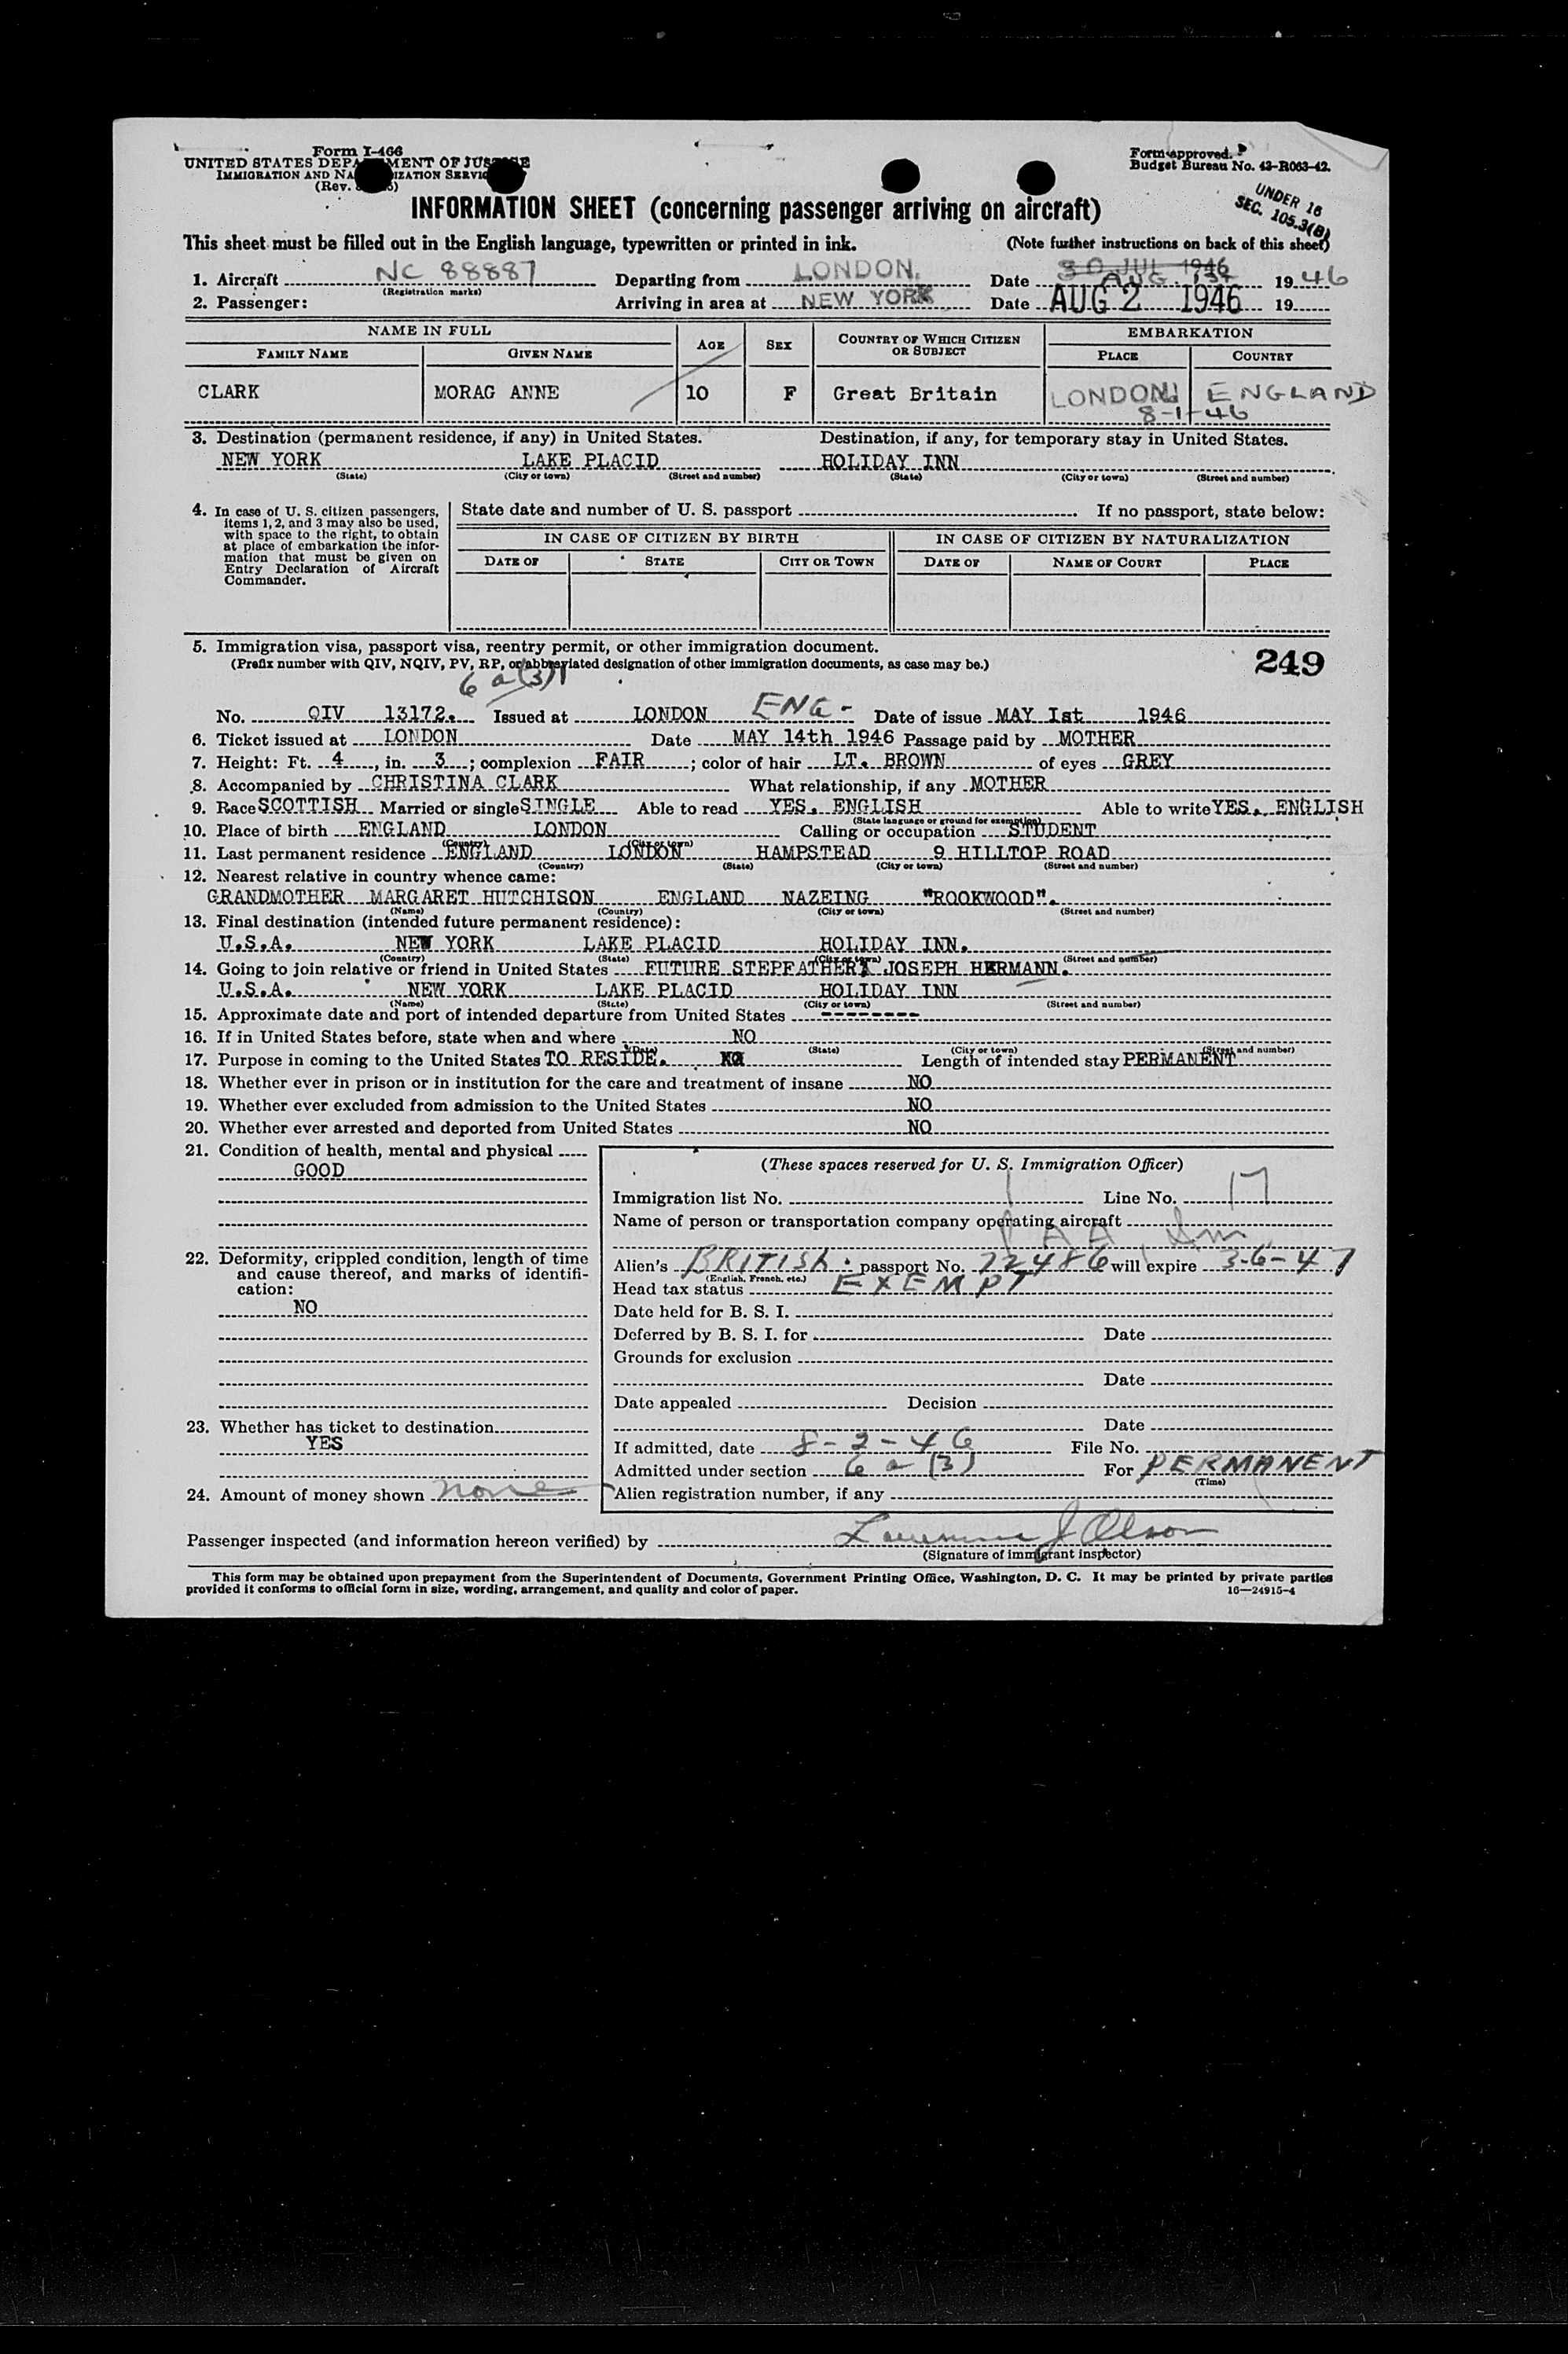 Form I-466
UNITED STATES DEPARTMENT OF JUSTICE
IMMIGRATION AND NATURALIZATION SERVICE
(Rev.
Form approved.
Budget Bureau No. 43-R063-42.
UNDER 16
SEC. 105.3(B)
INFORMATION SHEET (concerning passenger arriving on aircraft)
This sheet must be filled out in the English language, typewritten or printed in ink. (Note further instructions on back of this sheet)
30 JUL 1946
1. Aircraft NC 88887 Departing from LONDON. Date AUG 1st 1946
(Registration marks)
2. Passenger: Arriving in area at NEW YORK Date AUG 2 1946 19
NAME IN FULL AGE SEX COUNTRY OF WHICH CITIZEN OR SUBJECT EMBARKATION
FAMILY NAME GIVEN NAME PLACE COUNTRY
CLARK MORAG ANNE 10 F Great Britain LONDON ENGLAND
8-1-46
3. Destination (permanent residence, if any) in United States. Destination, if any, for temporary stay in United States.
NEW YORK LAKE PLACID HOLIDAY INN
(State) (City or town) (Street and number) (State) (City or town) (Street and number)
4. In case of U. S. citizen passengers,
items 1, 2, and 3 may also be used,
with space to the right, to obtain
at place of embarkation the infor-
mation that must be given on
Entry Declaration of Aircraft
Commander.
State date and number of U. S. passport If no passport, state below:
IN CASE OF CITIZEN BY BIRTH IN CASE OF CITIZEN BY NATURALIZATION
DATE OF STATE CITY OR TOWN DATE OF NAME OF COURT PLACE
5. Immigration visa, passport visa, reentry permit, or other immigration document.
(Prefix number with QIV, NQIV, PV, RP, or abbreviated designation of other immigration documents, as case may be.)
249
6 a (3)
No. QIV 13172. Issued at LONDON ENG- Date of issue MAY Ist 1946
6. Ticket issued at LONDON Date MAY 14th 1946 Passage paid by MOTHER
7. Height: Ft. 4, in. 3; complexion FAIR; color of hair LT. BROWN of eyes GREY
8. Accompanied by CHRISTINA CLARK What relationship, if any MOTHER
9. Race SCOTTISH Married or single SINGLE Able to read YES. ENGLISH Able to write YES. ENGLISH
(State language or ground for exemption)
10. Place of birth ENGLAND LONDON Calling or occupation STUDENT
(Country) (City or town)
11. Last permanent residence ENGLAND LONDON HAMPSTEAD 9 HILLTOP ROAD
(Country) (State) (City or town) (Street and number)
12. Nearest relative in country whence came:
GRANDMOTHER MARGARET HUTCHISON ENGLAND NAZEING "ROOKWOOD".
(Name) (Country) (City or town) (Street and number)
13. Final destination (intended future permanent residence):
U.S.A. NEW YORK LAKE PLACID HOLIDAY INN.
(Country) (State) (City or town) (Street and number)
14. Going to join relative or friend in United States FUTURE STEPFATHER, JOSEPH HERMANN.
U.S.A. NEW YORK LAKE PLACID HOLIDAY INN
(Name) (State) (City or town) (Street and number)
15. Approximate date and port of intended departure from United States ---------
16. If in United States before, state when and where NO
(Date) (State) (City or town) (Street and number)
17. Purpose in coming to the United States TO RESIDE. Length of intended stay PERMANENT
18. Whether ever in prison or in institution for the care and treatment of insane NO
19. Whether ever excluded from admission to the United States NO
20. Whether ever arrested and deported from United States NO
21. Condition of health, mental and physical
GOOD
22. Deformity, crippled condition, length of time
and cause thereof, and marks of identifi-
cation:
NO
23. Whether has ticket to destination
YES
24. Amount of money shown none
(These spaces reserved for U. S. Immigration Officer)
Immigration list No. 1 Line No. 17
Name of person or transportation company operating aircraft
P A A
Alien's BRITISH passport No. 22486 will expire 3-6-47
(English, French, etc.)
Head tax status EXEMPT
Date held for B. S. I.
Deferred by B. S. I. for Date
Grounds for exclusion
Date
Date appealed Decision
Date
If admitted, date 8-2-46 File No.
Admitted under section 6 a (3) For PERMANENT
(Time)
Alien registration number, if any
Passenger inspected (and information hereon verified) by Lawrence J Olson
(Signature of immigrant inspector)
This form may be obtained upon prepayment from the Superintendent of Documents, Government Printing Office, Washington, D. C. It may be printed by private parties
provided it conforms to official form in size, wording, arrangement, and quality and color of paper. 16—24915-4